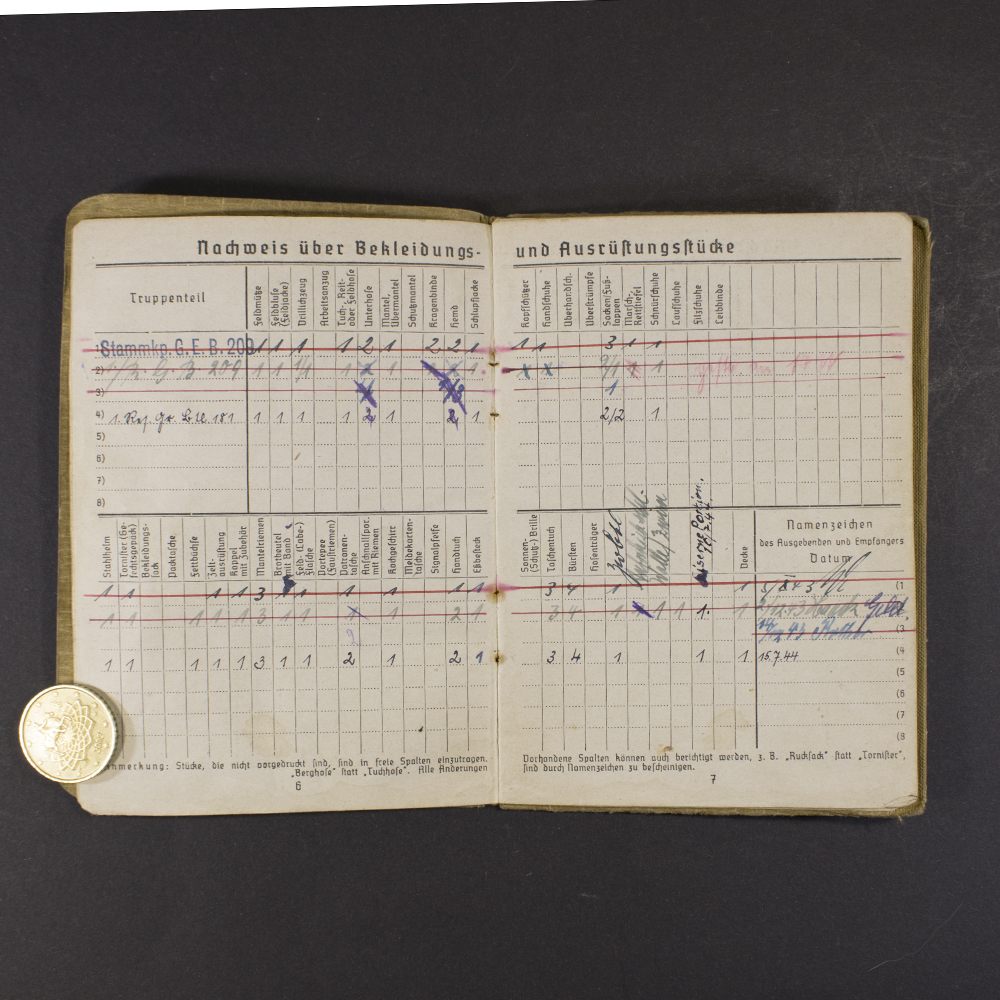 Nachweis über Bekleidungs- und Ausrüstungsstücke
Truppenteil
Feldmütze
Feldbluse (Feldjacke)
Drillichzeug
Arbeitsanzug
Tuch-, Reit- oder Feldhose
Unterhose
Mantel, Übermantel
Schutzmantel
Kragenbinde
Hemd
Schlupfjacke
Kopfschützer
Handschuhe
Überhandsch.
Überstrümpfe
Socken/Fußlappen
Marsch-, Reitstiefel
Schnürschuhe
Laufschuhe
Filzschuhe
Leibbinde
Stammkp. G. E. B. 209 1 1 1 1 2 1 2 2 1 1 1 3 1 1
2)
3)
4) 1 1 1 1 2 1 2 1 2/2 1
5)
6)
7)
8)
Stahlhelm
Tornister (Gefechtsgepäck)
Bekleidungssack
Packtasche
Fettbüchse
Zeltausrüstung
Koppel mit Zubehör
Mantelriemen
Brotbeutel mit Band
Feld- (Labe-) Flasche
Portepee (Faustriemen)
Patronentasche
Anschnallspor. mit Riemen
Kochgeschirr
Meldekartentasche
Signalpfeife
Handtuch
Eßbesteck
Sonnen- (Schutz-) Brille
Taschentuch
Bürsten
Hosenträger
Decke
Namenzeichen
des Ausgebenden und Empfängers
Datum
1 1 1 1 3 1 1 1 1 1 3 4 1 1 (1
1 1 1 1 3 1 1 1 2 1 3 4 1 1 1 1. 1
(3
1 1 1 1 1 3 1 1 2 1 2 1 3 4 1 1 1 15.7.44 (4
(5
(6
(7
(8
Anmerkung: Stücke, die nicht vorgedruckt sind, sind in freie Spalten einzutragen.
„Berghose“ statt „Tuchhose“. Alle Änderungen
6
Vorhandene Spalten können auch berichtigt werden, z. B. „Rucksack“ statt „Tornister“,
sind durch Namenzeichen zu bescheinigen.
7